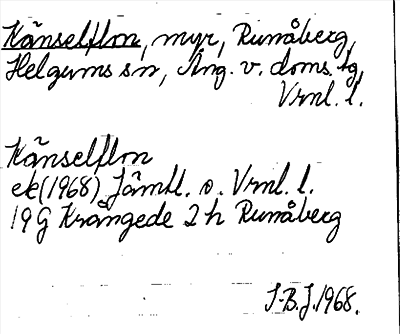 Känselflon, myr, Runåberg,
Helgums sn, Ång. v. doms. tg,
Vrnl. l.
Känselflon
ek(1968) Jämtl. o. Vrnl. l.
19G Krångede 2h Runåberg
S-B.J. 1968.